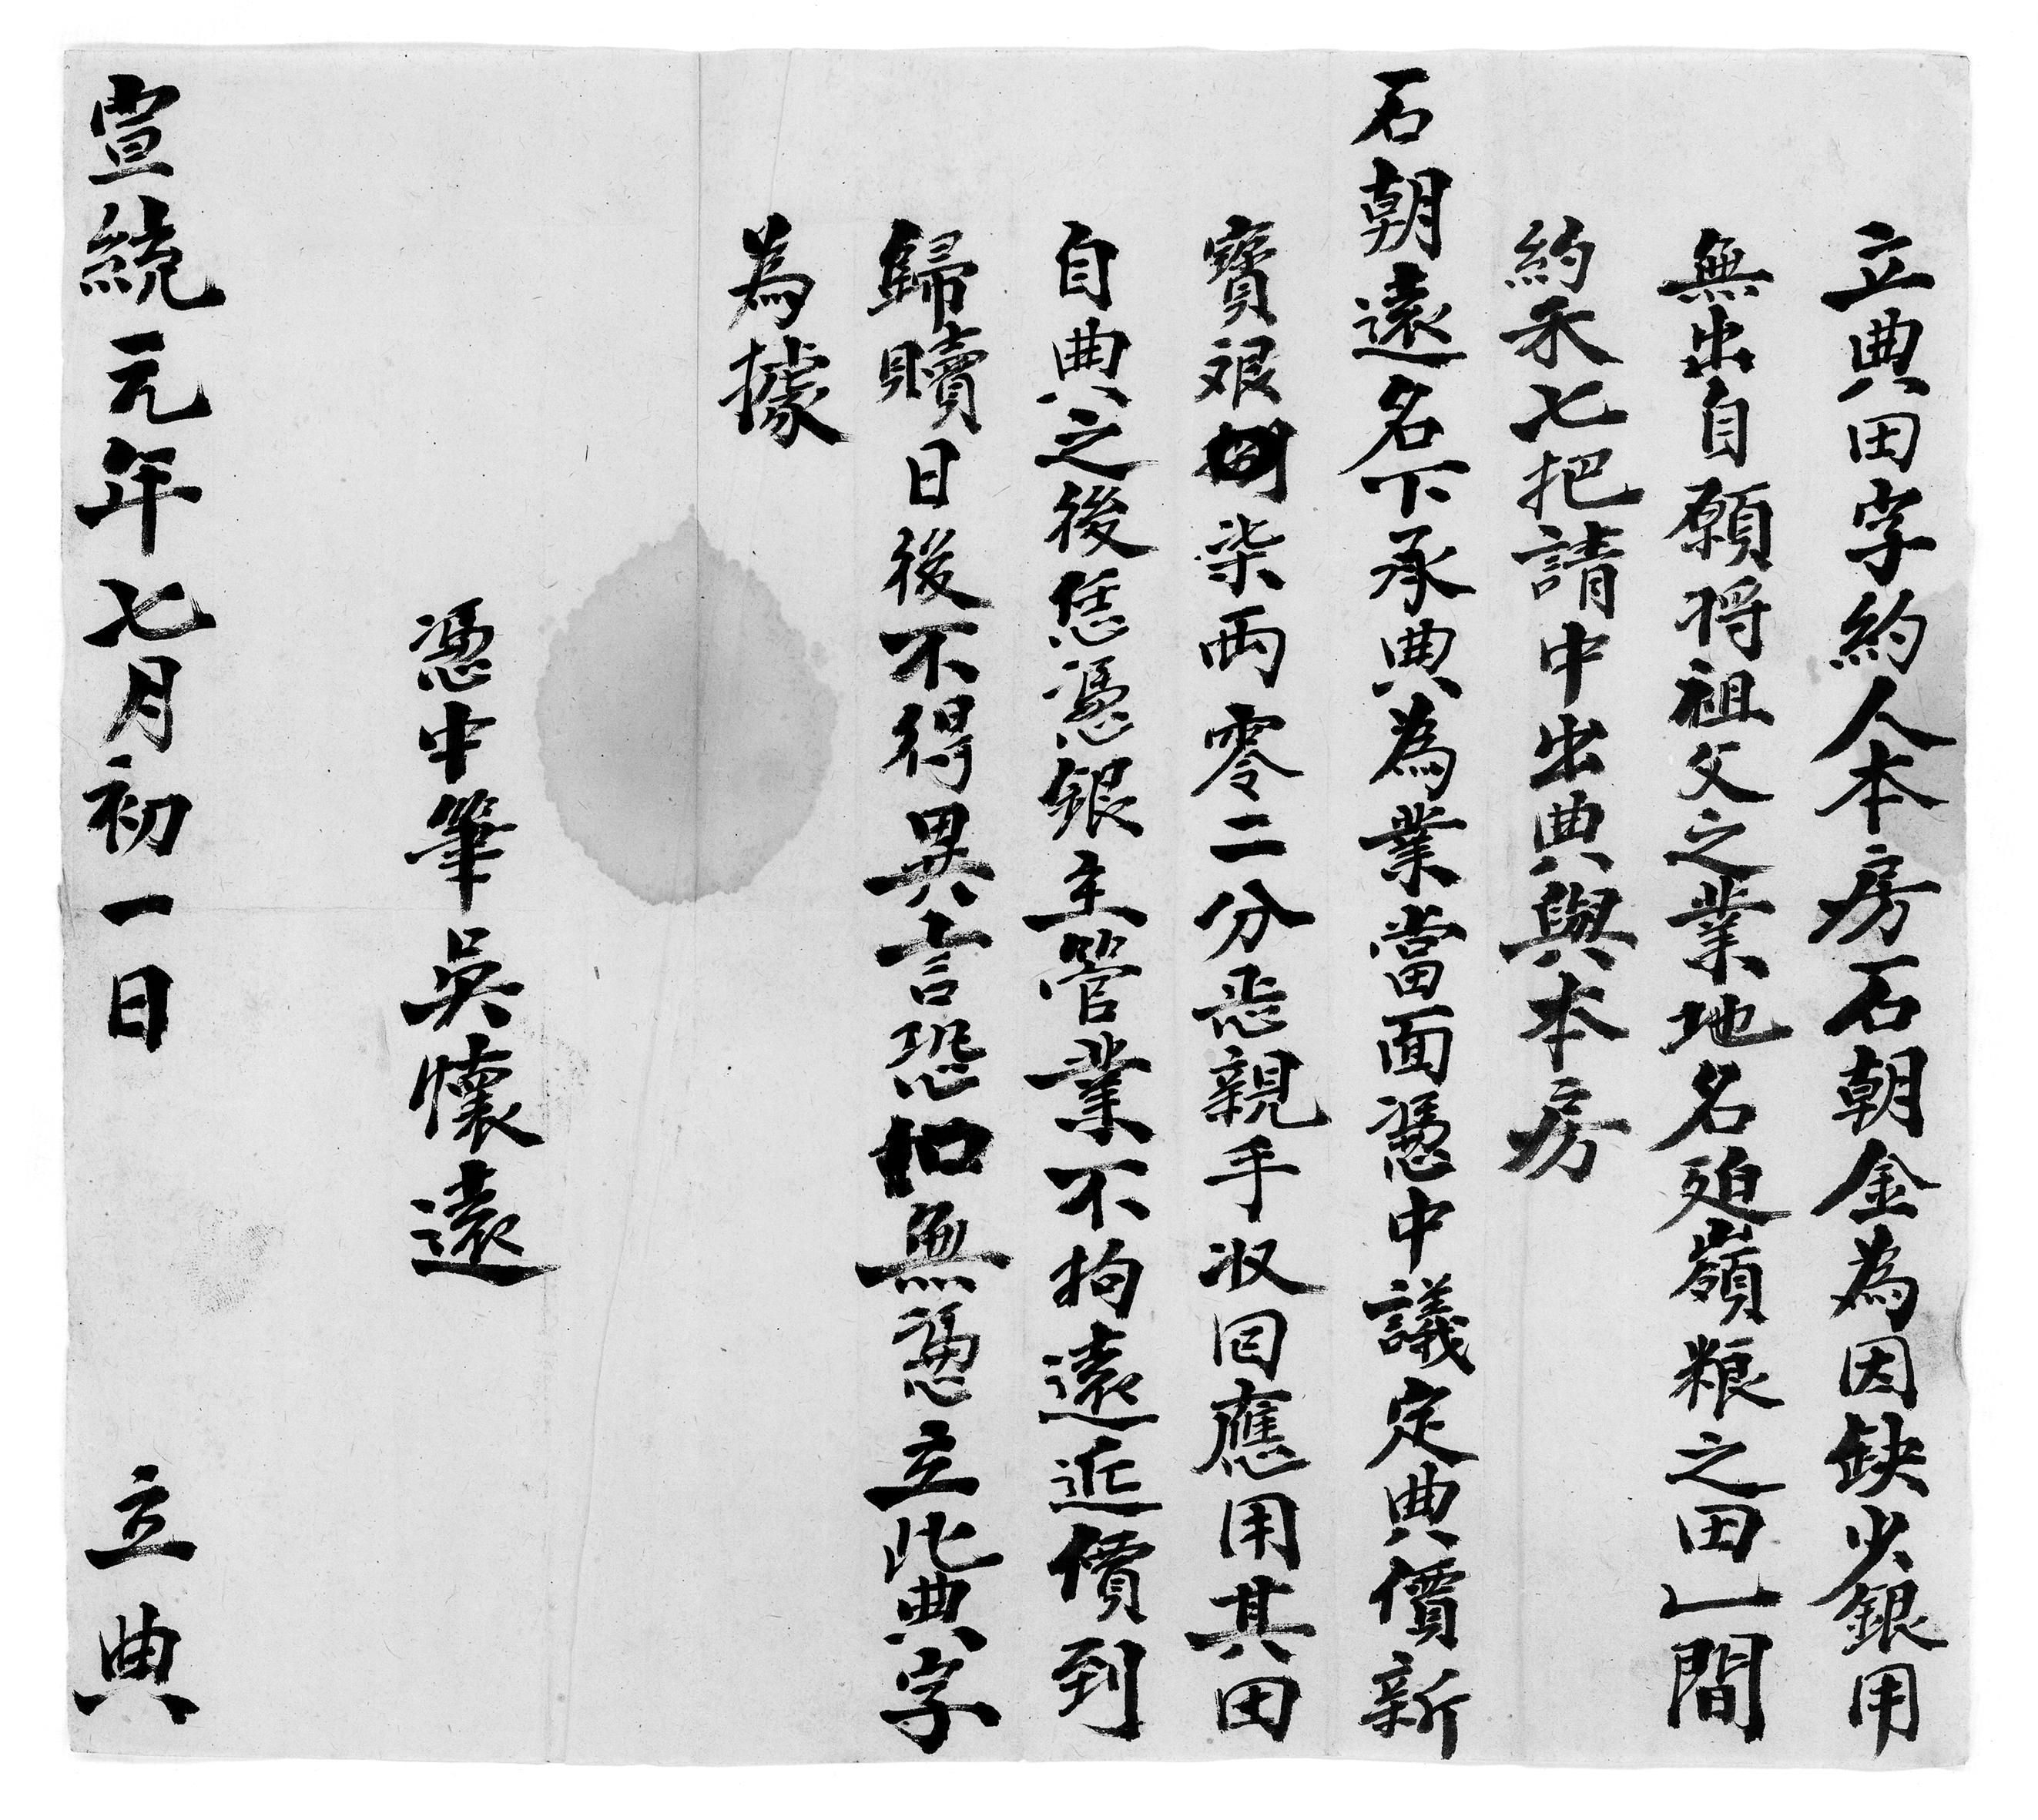 立典田字約人本房石朝金為因缺少銀用
無出自願将祖父之業地名廹嶺粮之田一間
約禾七把請中出典與本房
石朝遠名下承典為業當面憑中議定典價新
寶艮柒両零二分悉親手收囘應用其田
自典之後恁憑銀主管業不拘遠近價到
歸贖日後不得異言恐口無憑立此典字
為據
憑中筆吳懷遠
宣統元年七月初一日 立典